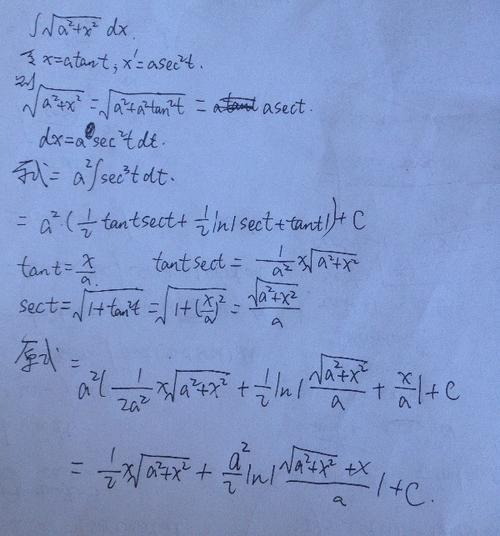 ∫√(a²+x²) dx.
令 x=atant, x'=asec²t.
则
√(a²+x²) = √(a²+a²tan²t) = asect.
dx=asec²tdt.
原式= a²∫sec³tdt.
= a²·(1/2 tantsect+ 1/2 ln|sect+tant|)+C
tant= x/a. tantsect= 1/a² x√(a²+x²)
sect=√(1+tan²t) = √(1+(x/a)²) = √(a²+x²)/a
原式=
a²(1/2a² x√(a²+x²) + 1/2 ln|√(a²+x²)/a + x/a|+C
= 1/2 x√(a²+x²) + a²/2 ln|(√(a²+x²)+x)/a|+C.